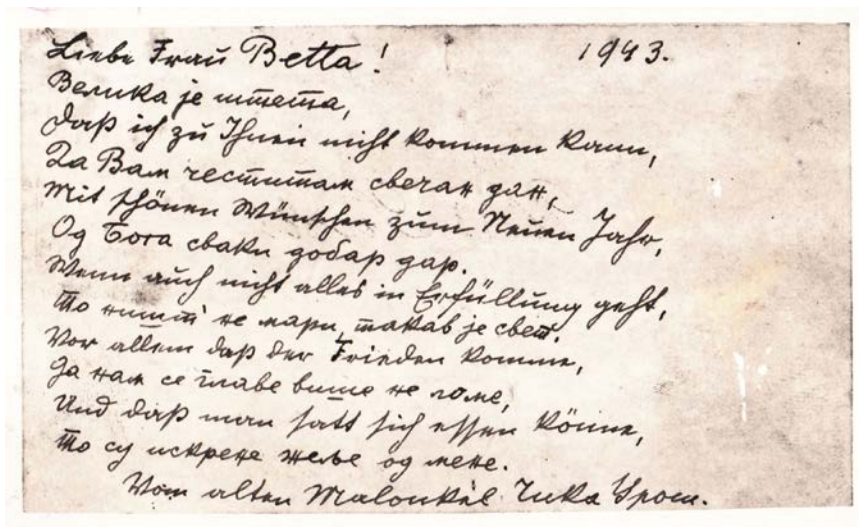 Liebe Frau Betta! 1943.
Велика је штета,
Daß ich zu Ihnen nicht kommen kann,
Да Вам честитам свечан дан,
Mit schönen Wünschen zum Neuen Jahr,
Од Бога сваки добар дар.
Wenn auch nicht alles in Erfüllung geht,
То ништ не мари, такав је свет.
Vor allem daß der Frieden komme,
Да нам се главе више не ломе,
Und daß man satt sich essen könne,
То су искрене жеље од мене.
Vom alten Maloukel Чика